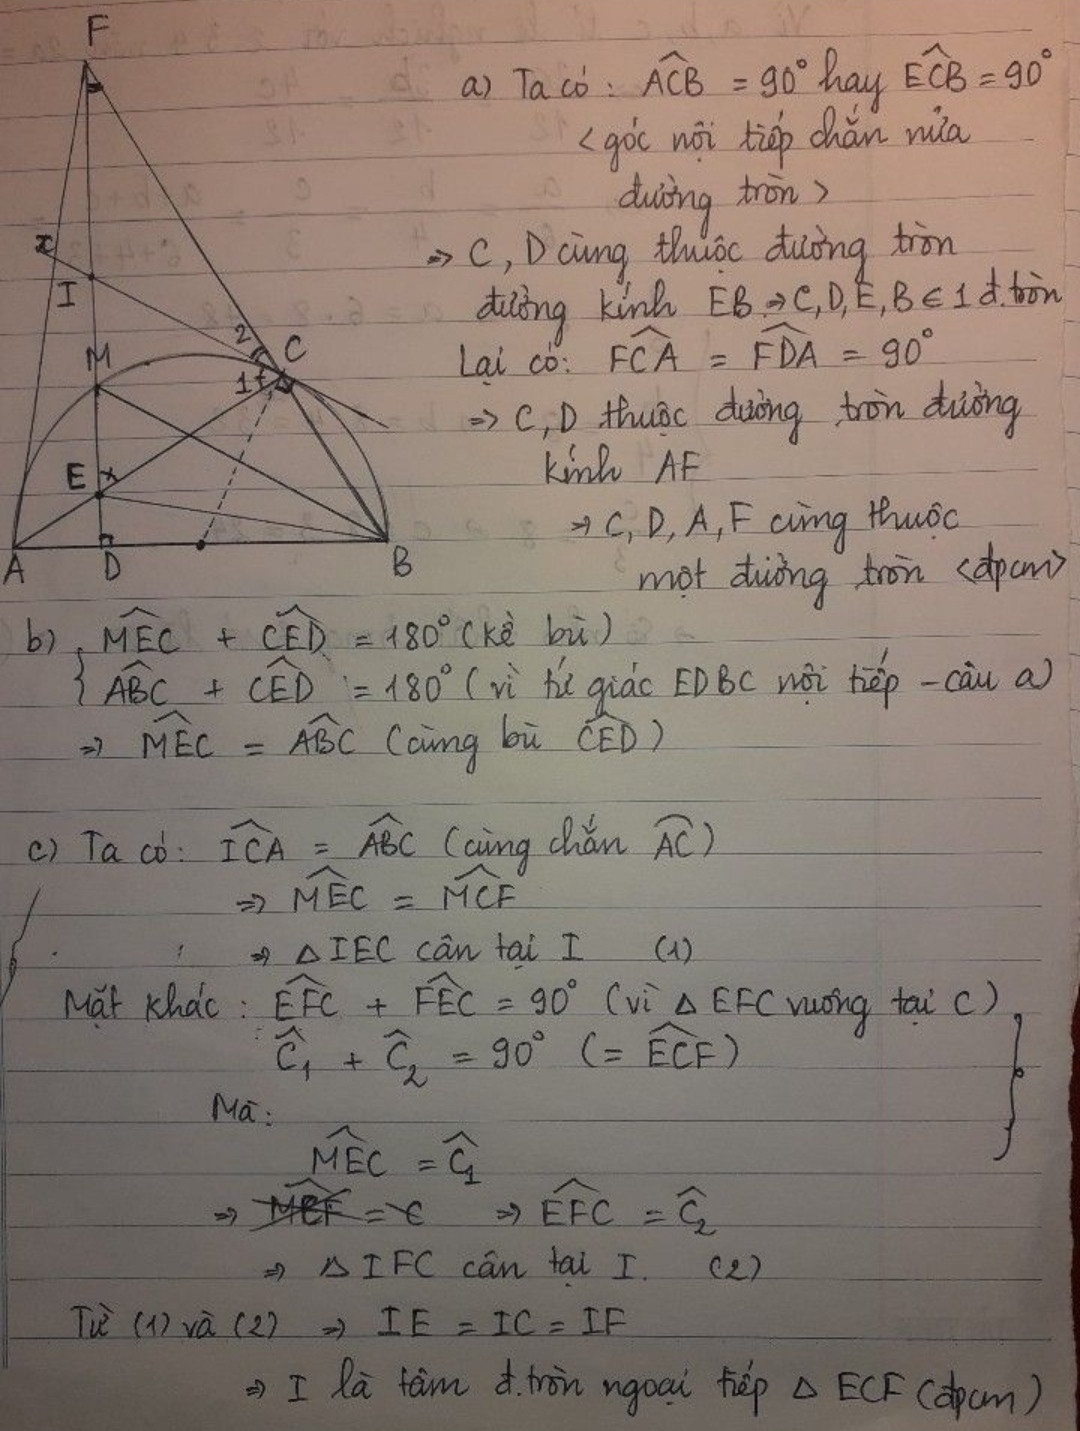 F
a) Ta có : ACB = 90° hay ECB = 90°
<góc nội tiếp chắn nửa
đường tròn>
x
⇒ C, D cùng thuộc đường tròn
I
đường kính EB ⇒ C,D,E,B ∈ 1 đ.tròn
2
C
M
Lại có: FCA = FDA = 90°
1
⇒ C, D thuộc đường tròn đường
E
kính AF
⇒ C, D, A, F cùng thuộc
A D B
một đường tròn <đpcm>
b) MEC + CED = 180° (kề bù)
{ ABC + CED = 180° (vì tứ giác EDBC nội tiếp - câu a)
⇒ MEC = ABC (cùng bù CED)
c) Ta có: ICA = ABC (cùng chắn AC)
⇒ MEC = MCF
⇒ Δ IEC cân tại I (1)
Mặt khác : EFC + FEC = 90° (vì Δ EFC vuông tại C)
C₁ + C₂ = 90° (= ECF)
Mà:
MEC = C₁
⇒ EFC = C₂
⇒ Δ IFC cân tại I. (2)
Từ (1) và (2) ⇒ IE = IC = IF
⇒ I là tâm đ.tròn ngoại tiếp Δ ECF (đpcm)